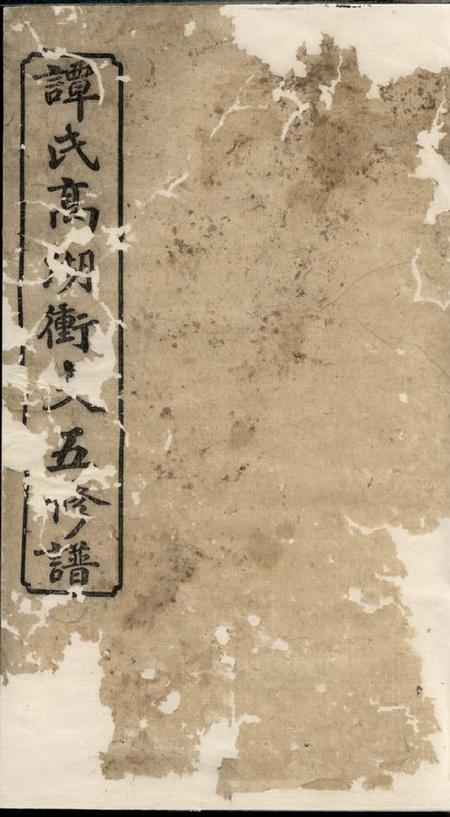 譚氏高湖衝大五修譜